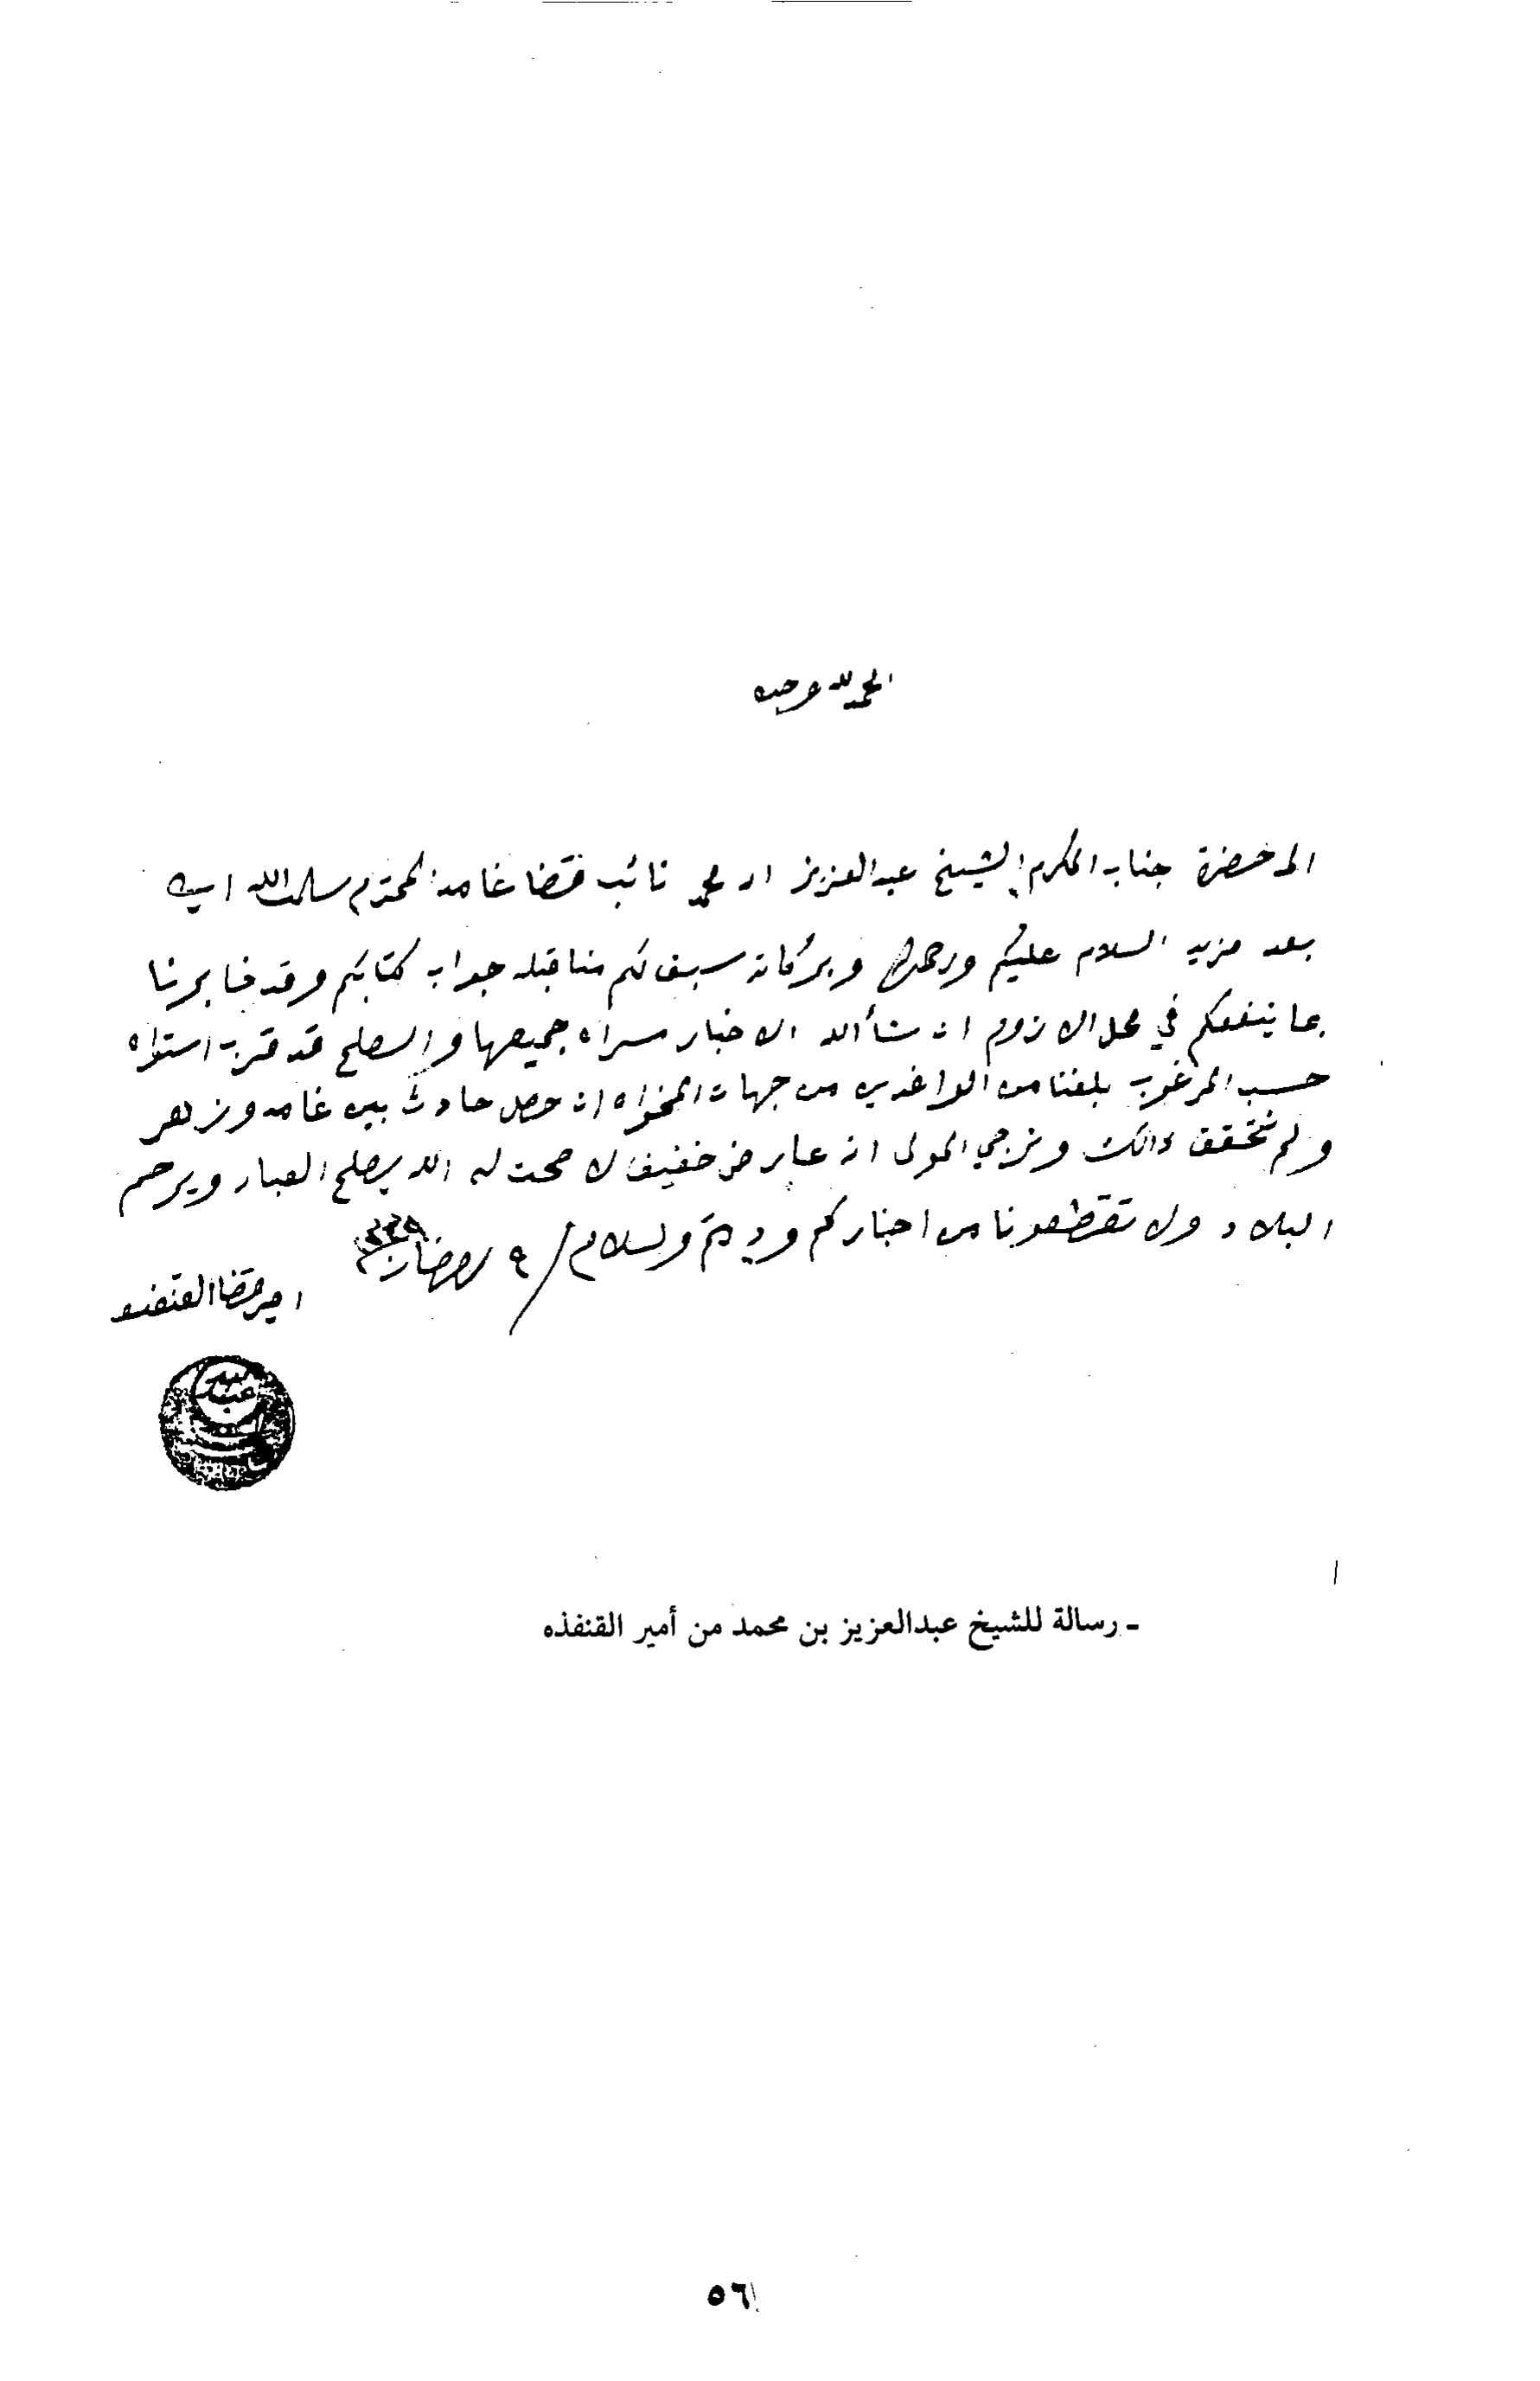 الحمد لله وحده
الى حضرة جناب المكرم الشيخ عبدالعزيز محمد نائب قضا غامد المحترم سلمه الله امين
بعد مزيد السلام عليكم ورحمة الله وبركاته سبق لكم منا قبله جواب كتابكم وقد خابرنا
بما ينفعكم في محل الازوم ان شاء الله الاخبار مسراه جميعها والصلح قد قرب استواه
حسب المرغوب بلغنا من الوافدين من جهات المخواه ان حصل حادث بين غامد وزهر
ولم نتحقق ذالك ونرجي المولى انه عارض خفيف لا صحت له الله يصلح العباد ويرحم
البلاد ولا تقطعونا من اخباركم ودمتم والسلام / ٩ رمضان
امير قضا القنفذه
ـ رسالة للشيخ عبدالعزيز بن محمد من أمير القنفذه
٥٦